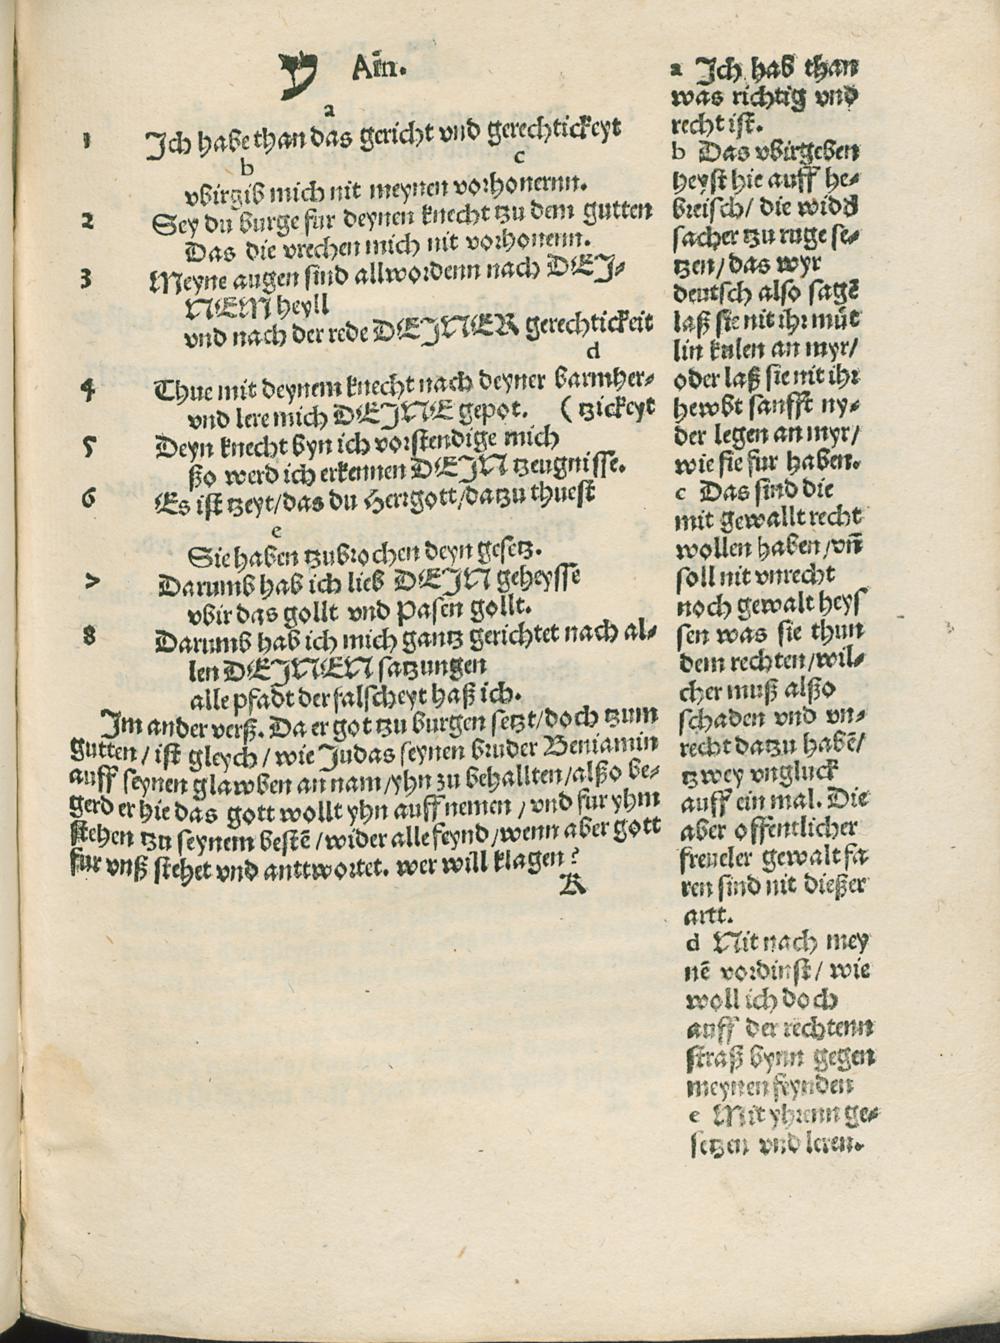 ע Ain.
a
1 Ich habe than das gericht vnd gerechtickeyt
b c
vbirgib mich nit meynen vorhonernn.
2 Sey du burge fur deynen knecht tzu dem gutten
Das die vrechen mich nit vorhonenn.
3 Meyne augen sind allwordenn nach DEJ⸗
NEM heyll
vnd nach der rede DEJNER gerechtickeit
d
4 Thue mit deynem knecht nach deyner barmher⸗
vnd lere mich DEJNE gepot. ( tzickeyt
5 Deyn knecht byn ich vorstendige mich
ßo werd ich erkennen DEJN tzeugnisse.
6 Es ist tzeyt/das du Herrgott/datzu thuest
e
Sie haben tzubrochen deyn gesetz.
7 Darumb hab ich lieb DEJN geheysse
vbir das gollt vnd Pasen gollt.
8 Darumb hab ich mich gantz gerichtet nach al⸗
len DEJNEN satzungen
alle pfadt der falscheyt haß ich.
Im ander verß. Da er got tzu burgen setzt/doch tzum
gutten/ist gleych/wie Judas seynen bruder Beniamin
auff seynen glawben an nam/yhn zu behallten/alßo be⸗
gerd er hie das gott wollt yhn auff nemen/vnd fur yhm
stehen tzu seynem bestē/wider alle feynd/wenn aber gott
fur vnß stehet vnd anttwortet. wer will klagen?
K
a Ich hab than
was richtig vnd
recht ist.
b Das vbirgeben
heyst hie auff he⸗
breisch/ die widd
sacher tzu ruge se⸗
tzen/das wyr
deutsch also sagē
laß sie nit ihr müt
lin kulen an myr/
oder laß sie nit ihr
hewbt sanfft ny⸗
der legen an myr/
wie sie fur haben.
c Das sind die
mit gewallt recht
wollen haben/vn̄
soll nit vnrecht
noch gewalt heys
sen was sie thun
dem rechten/wil⸗
cher muß alßo
schaden vnd vn⸗
recht datzu habē/
tzwey vngluck
auff ein mal. Die
aber offentlicher
freueler gewalt fa
ren sind nit dießer
artt.
d Nit nach mey
nē vordinst/ wie
woll ich doch
auff der rechtenn
straß bynn gegen
meynen feynden
e Mit yhrenn ge⸗
setzen vnd leren.